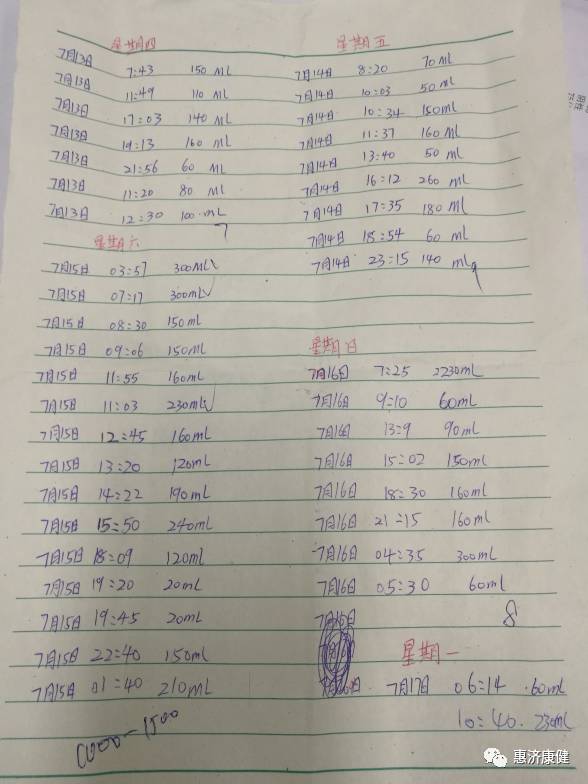 星期四
7月13日 7:43 150 ML
7月13日 11:49 110 ML
7月13日 17:03 140 ML
7月13日 19:13 160 ML
7月13日 21:56 60 ML
7月13日 11:20 80 ML
7月13日 12:30 100 ML
7
星期五
7月14日 8:20 70 ML
7月14日 10:03 50 ML
7月14日 10:34 150ML
7月14日 11:37 160 ML
7月14日 13:40 50 ML
7月14日 16:12 260 ML
7月14日 17:35 180 ML
7月14日 18:54 60 ML
7月14日 23:15 140 ML
9
星期六
7月15日 03:57 300ML√
7月15日 07:17 300ML√
7月15日 08:30 150ML
7月15日 09:06 150ML
7月15日 11:55 160ML
7月15日 11:03 230ML√
7月15日 12:45 160ML
7月15日 13:20 120ML
7月15日 14:22 190ML
7月15日 15:50 240ML
7月15日 18:09 120ML
7月15日 19:20 20ML
7月15日 19:45 20ML
7月15日 22:40 150ML
7月15日 01:40 210ML
1000-1500
星期日
7月16日 7:25 2230ML
7月16日 9:10 60ML
7月16日 13:9 90ML
7月16日 15:02 150ML
7月16日 18:30 160ML
7月16日 21:15 160ML
7月16日 04:35 300ML
7月16日 05:30 60ML
7月16日 8
星期一
7月17日 06:14 60ML
10:40 230ML
惠济康健